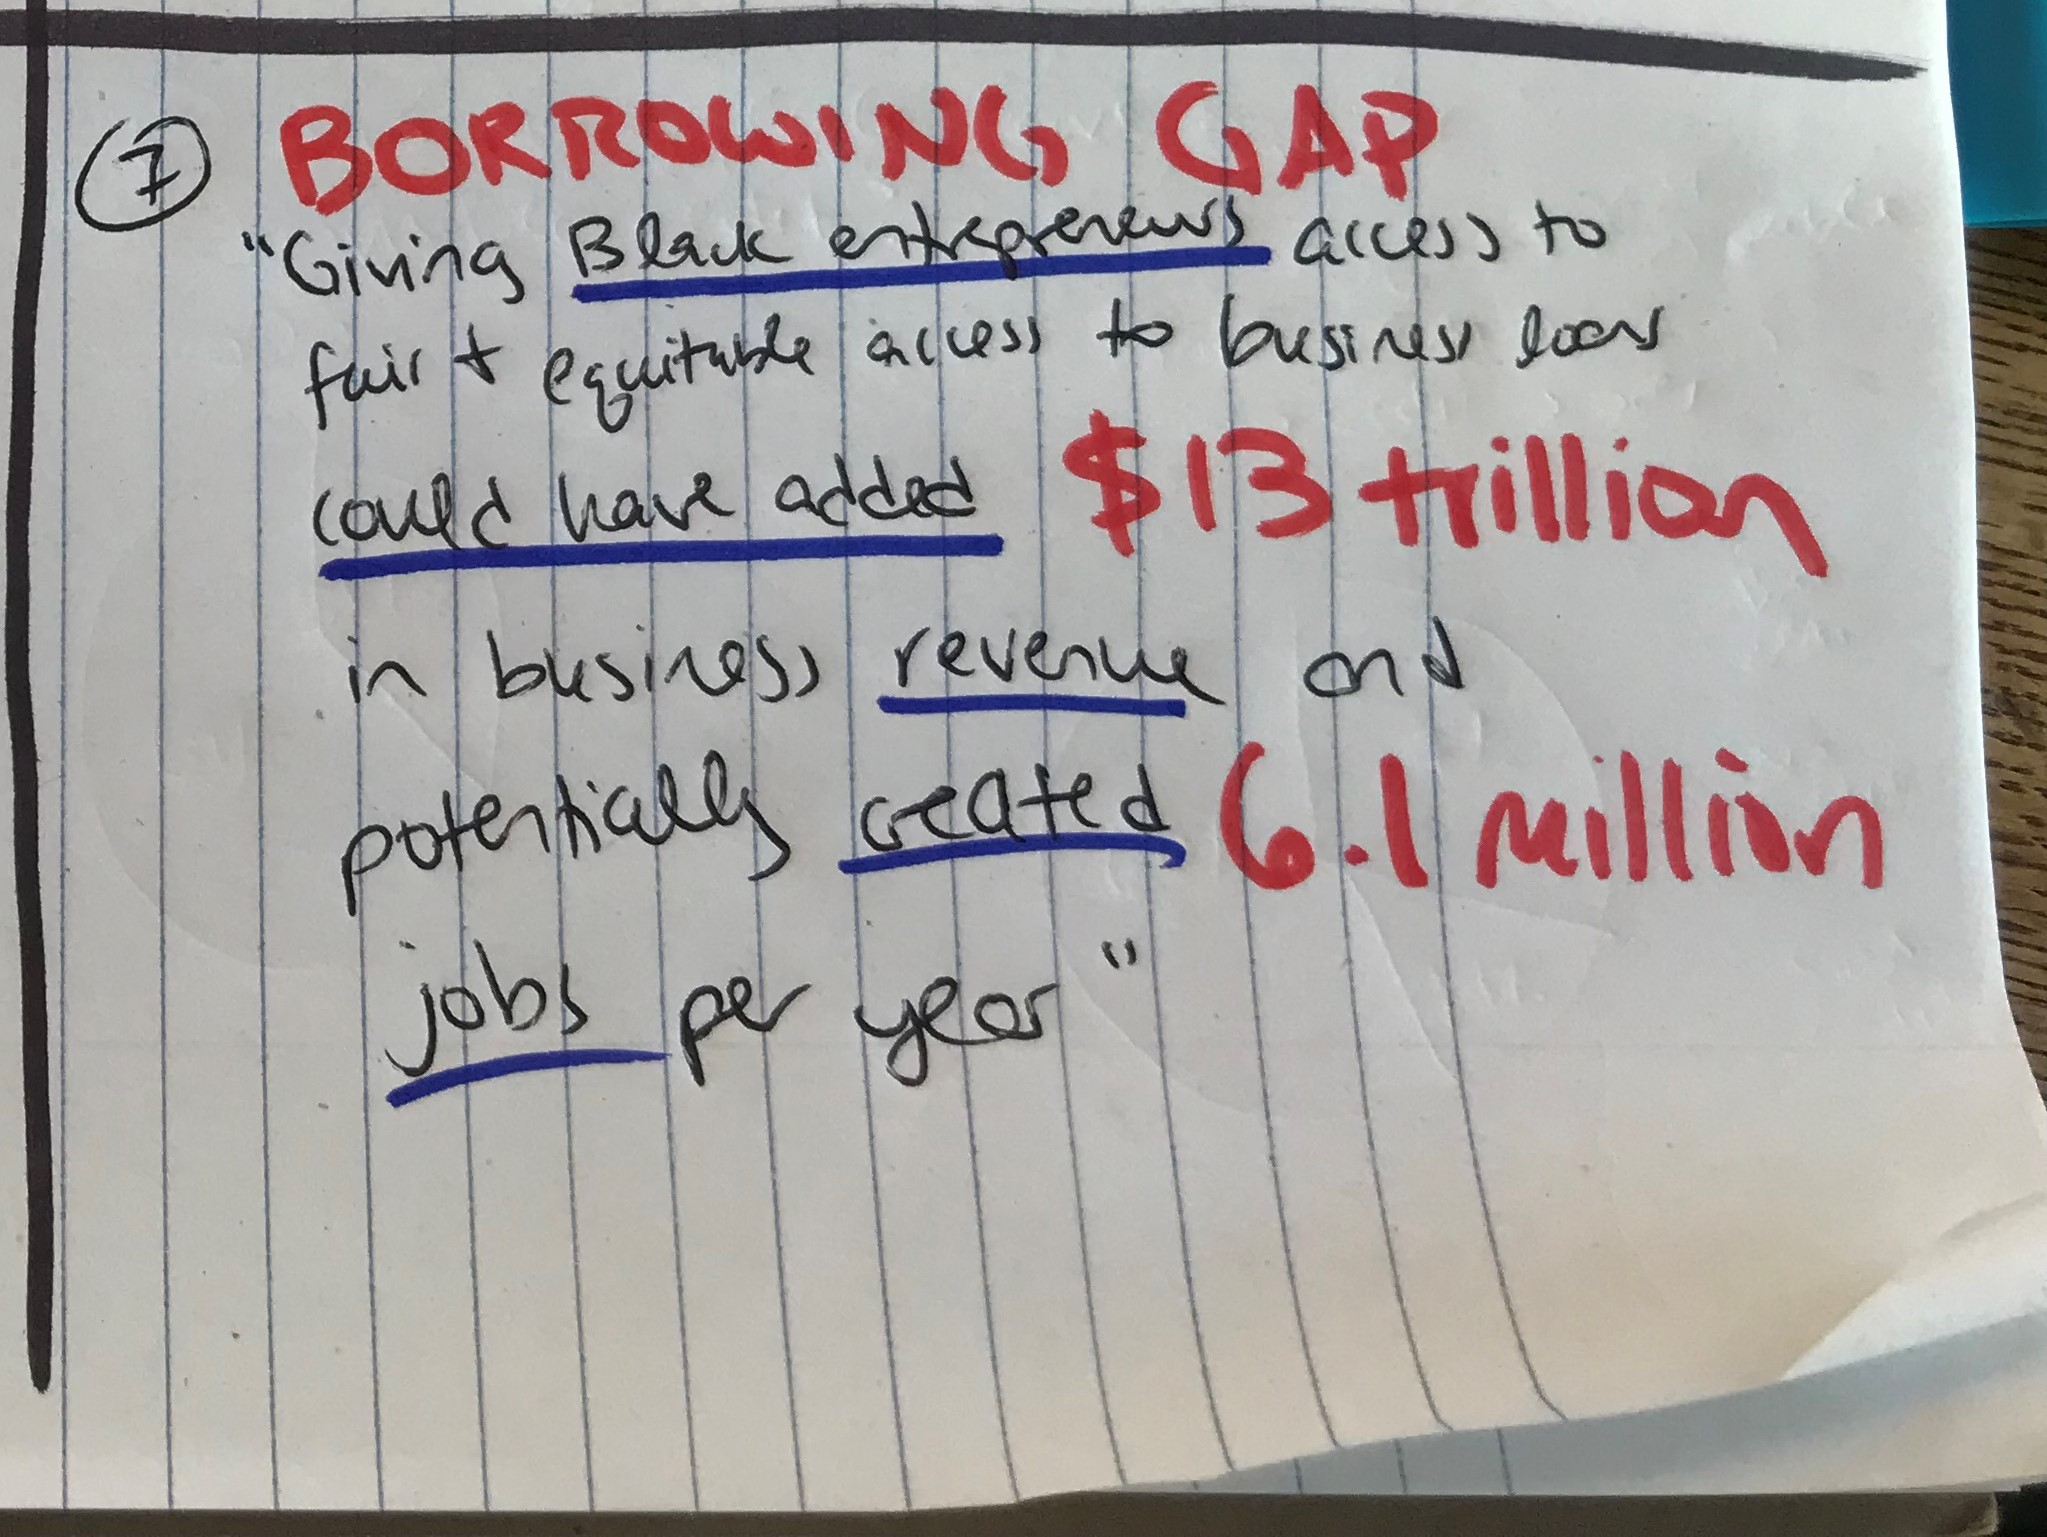 7 BORROWING GAP
"Giving Black entrepreneurs access to
fair + equitable access to business loans
could have added $13 trillion
in business revenue and
potentially created 6.1 million
jobs per year"